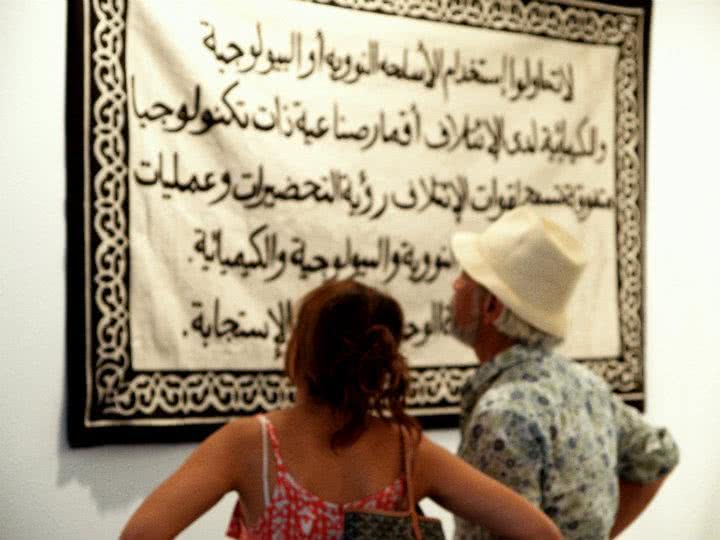 لا تحاولوا إستخدام الأسلحه النوويه أو البيولوجية
والكيميائية لدى الإئتلاف أقمار صناعية ذات تكنولوجيا
متفوقة تسمح لقوات الإئتلاف رؤية التحضيرات وعمليات
النووية والبيولوجية والكيميائية.
الإستجابة.